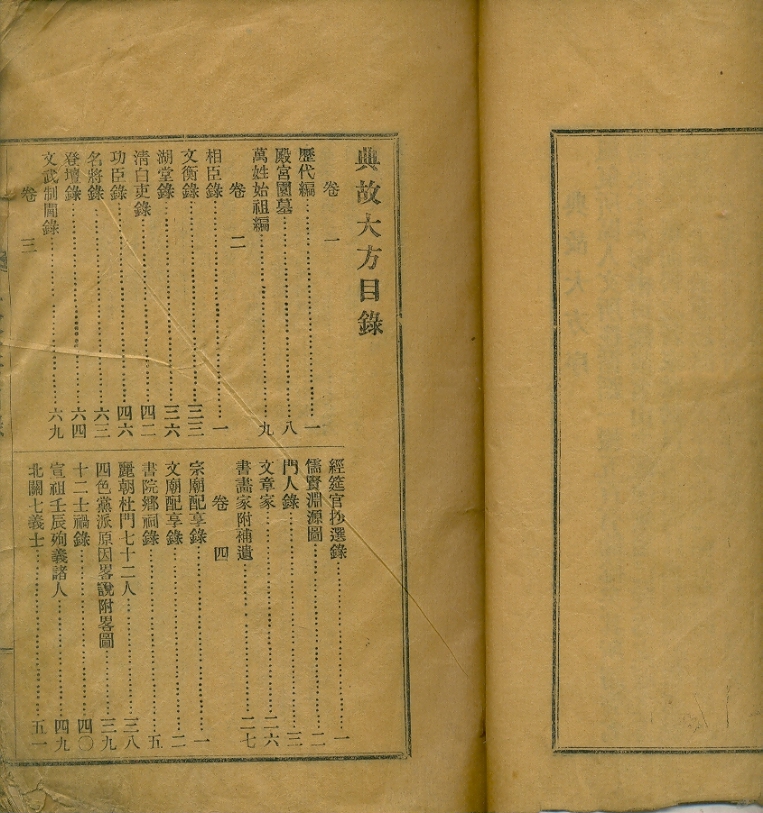 典故大方目錄
卷一
歷代編 一
殿宮園墓 八
萬姓始祖編 九
卷二
相臣錄 一
文衡錄 三三
湖堂錄 三六
清白吏錄 四二
功臣錄 四六
名將錄 六三
登壇錄 六四
文武制閫錄 六九
卷三
經筵官抄選錄 一
儒賢淵源圖 二
門人錄 三
文章家 二六
書畵家附補遺 二七
卷四
宗廟配享錄 一
文廟配享錄 二
書院鄉祠錄 五
麗朝杜門七十二人 三八
四色黨派原因畧說附畧圖 三九
十二士禍錄 四〇
宣祖壬辰殉義諸人 四九
北關七義士 五一